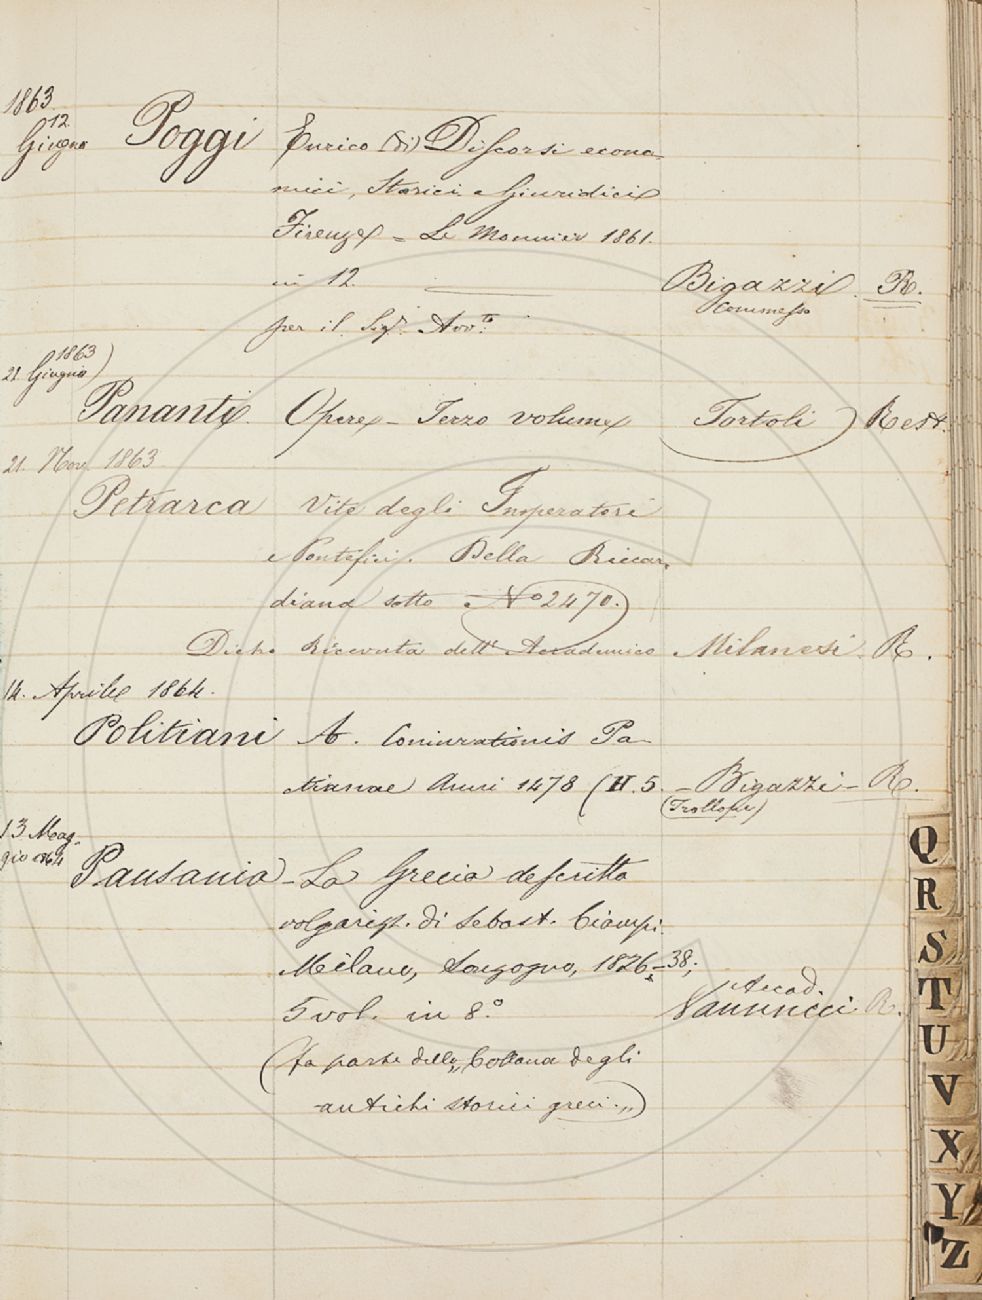 1863
12 Giugno
Poggi Enrico (di) Discorsi econo-
mici, Storici e Giuridici
Firenze - Le Monnier 1861.
in 12. Bigazzi R.
commesso
per il Sigr. Avv.to
1863)
21 Giugno
Pananti Opere - Terzo volume Tortoli Rest.
21. Nov. 1863
Petrarca Vite degli Imperatori
e Pontefici. Della Riccar-
diana sotto No 2470.
Dicho Ricevuta dell' Accademico Milanesi. R.
14. Aprile 1864.
Politiani A. Coniurationis Pa-
ctianae Anni 1478 (H. 5. - Bigazzi - R.
(Trollope)
13 Mag-
gio 1864
Pausania - La Grecia descritta
volgarizz. di Sebast. Ciampi.
Milano, Sonzogno, 1826-38;
Accad.
5 vol. in 8.° Vannucci R.
(fa parte della „Collana degli
antichi storici greci.„)
Q
R
S
T
U
V
X
Y
Z